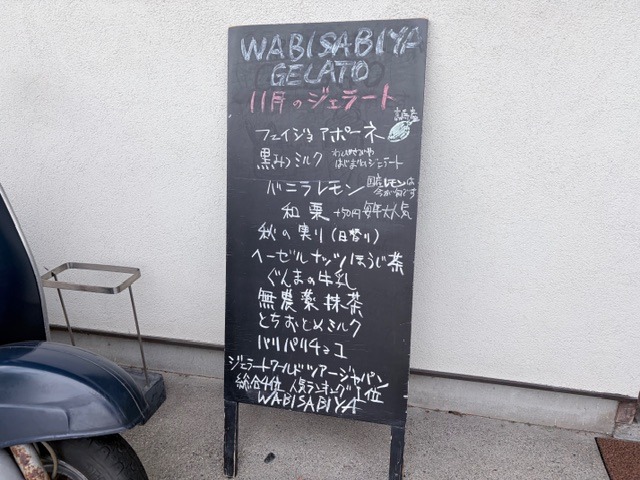 WABISABIYA
GELATO
11月のジェラート
フェイジョアポーネ
黒みつミルク わびさびや
はじまりのジェラート
バニラレモン 国産レモンは
今が旬です
和栗 +50円 毎年大人気
秋の実り(日替り)
ヘーゼルナッツほうじ茶
ぐんまの牛乳
無農薬抹茶
とちおとめミルク
パリパリチョコ
ジェラートワールドツアージャパン
総合4位 人気ランキング1位
WABISABIYA